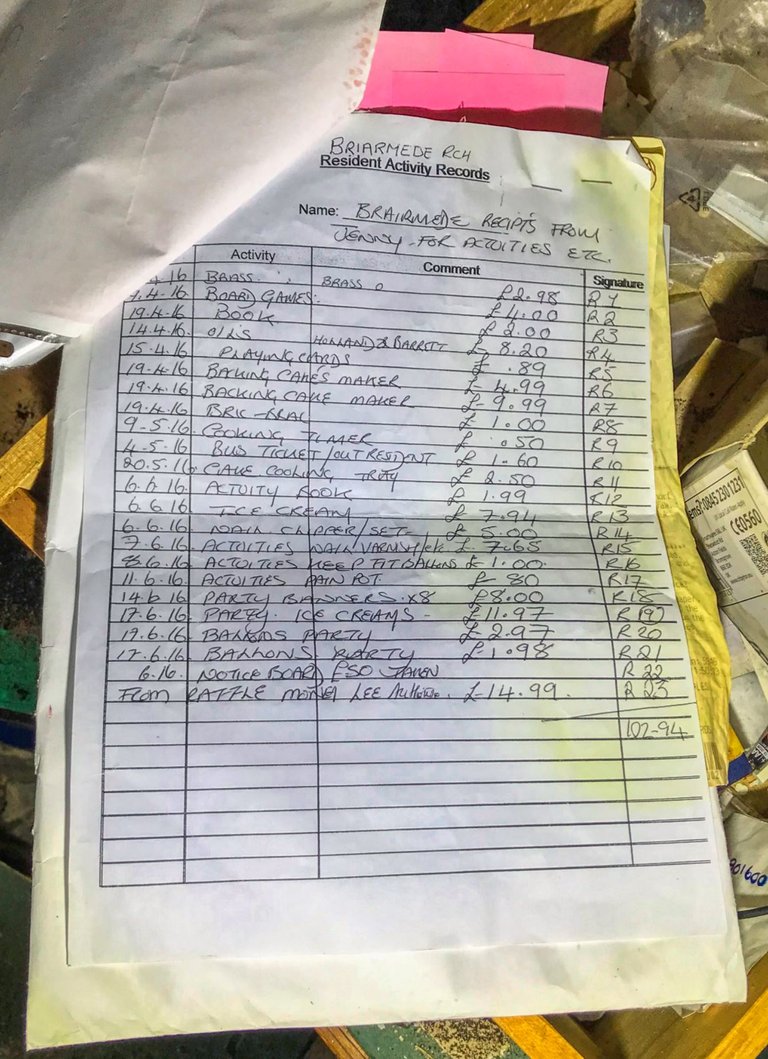 BRIARMEDE RCH
Resident Activity Records
Name: BRAIRMEDE RECIPTS FROM
JENNY FOR ACTUITIES ETC.
Activity Comment Signature
.4.16 BRASS. BRASS £2.98 R 1
.4.16 BOARD GAMES. £4.00 R 2
19.4.16 BOOK £2.00 R3
14.4.16 OILS HOLLAND & BARRETT £8.20 R4
15.4.16 PLAYING CARDS £ .89 R5
19.4.16 BACKING CAKES MAKER £4.99 R6
19.4.16 BACKING CAKE MAKER £9.99 R7
19.4.16 BRIC-BRAC £1.00 R8
9.5.16 COOKING TIMER £ .50 R9
4.5.16 BUS TICKET/OUT RESIDENT £1.60 R10
20.5.16 CAKE COOLING TRAY £2.50 R11
6.6.16 ACTUITY BOOK £1.99 R12
6.6.16 ICE CREAM £7.94 R13
6.6.16 NAIL CLIPPER/SET £5.00 R14
7.6.16 ACTUITIES NAIL VARNISH/etc £7.65 R15
8.6.16 ACTUITIES KEEP FIT BALLONS £1.00 R16
11.6.16 ACTUITIES PAIN POT. £ 80 R17
14.6.16 PARTY BANNERS. X8 £8.00 R18
17.6.16 PARTY. ICE CREAMS - £11.97 R19
17.6.16 BALLONS PARTY £2.97 R20
17.6.16 BALLONS PARTY £1.98 R21
6.16. NOTICE BOARD £50 TAKEN R22
FROM RAFFLE MONEY LEE £14.99. R23
102-94
08452301231
CE0560
801600